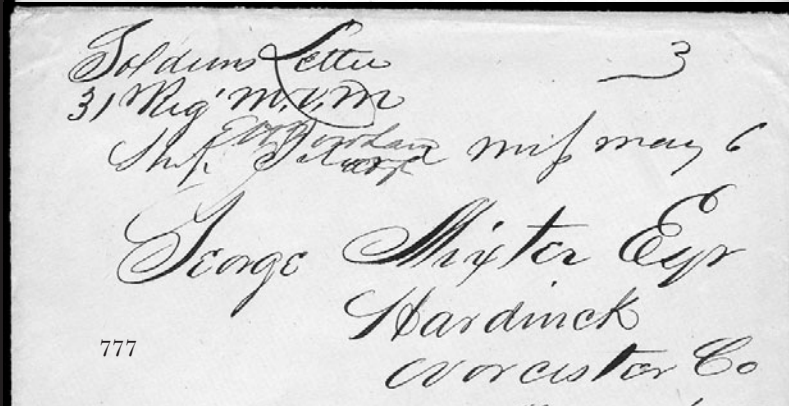 Soldiers Letter 3
31 Reg' M.V.M
Ship Island Miss May 6
George Mixter Esqr
Hardwick
Worcister Co
777